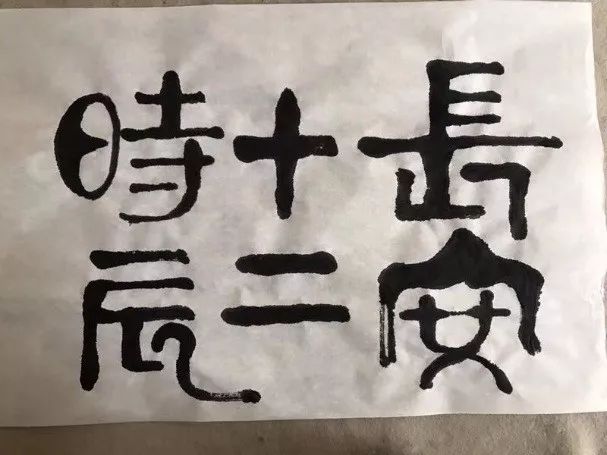 長安
十二
時辰